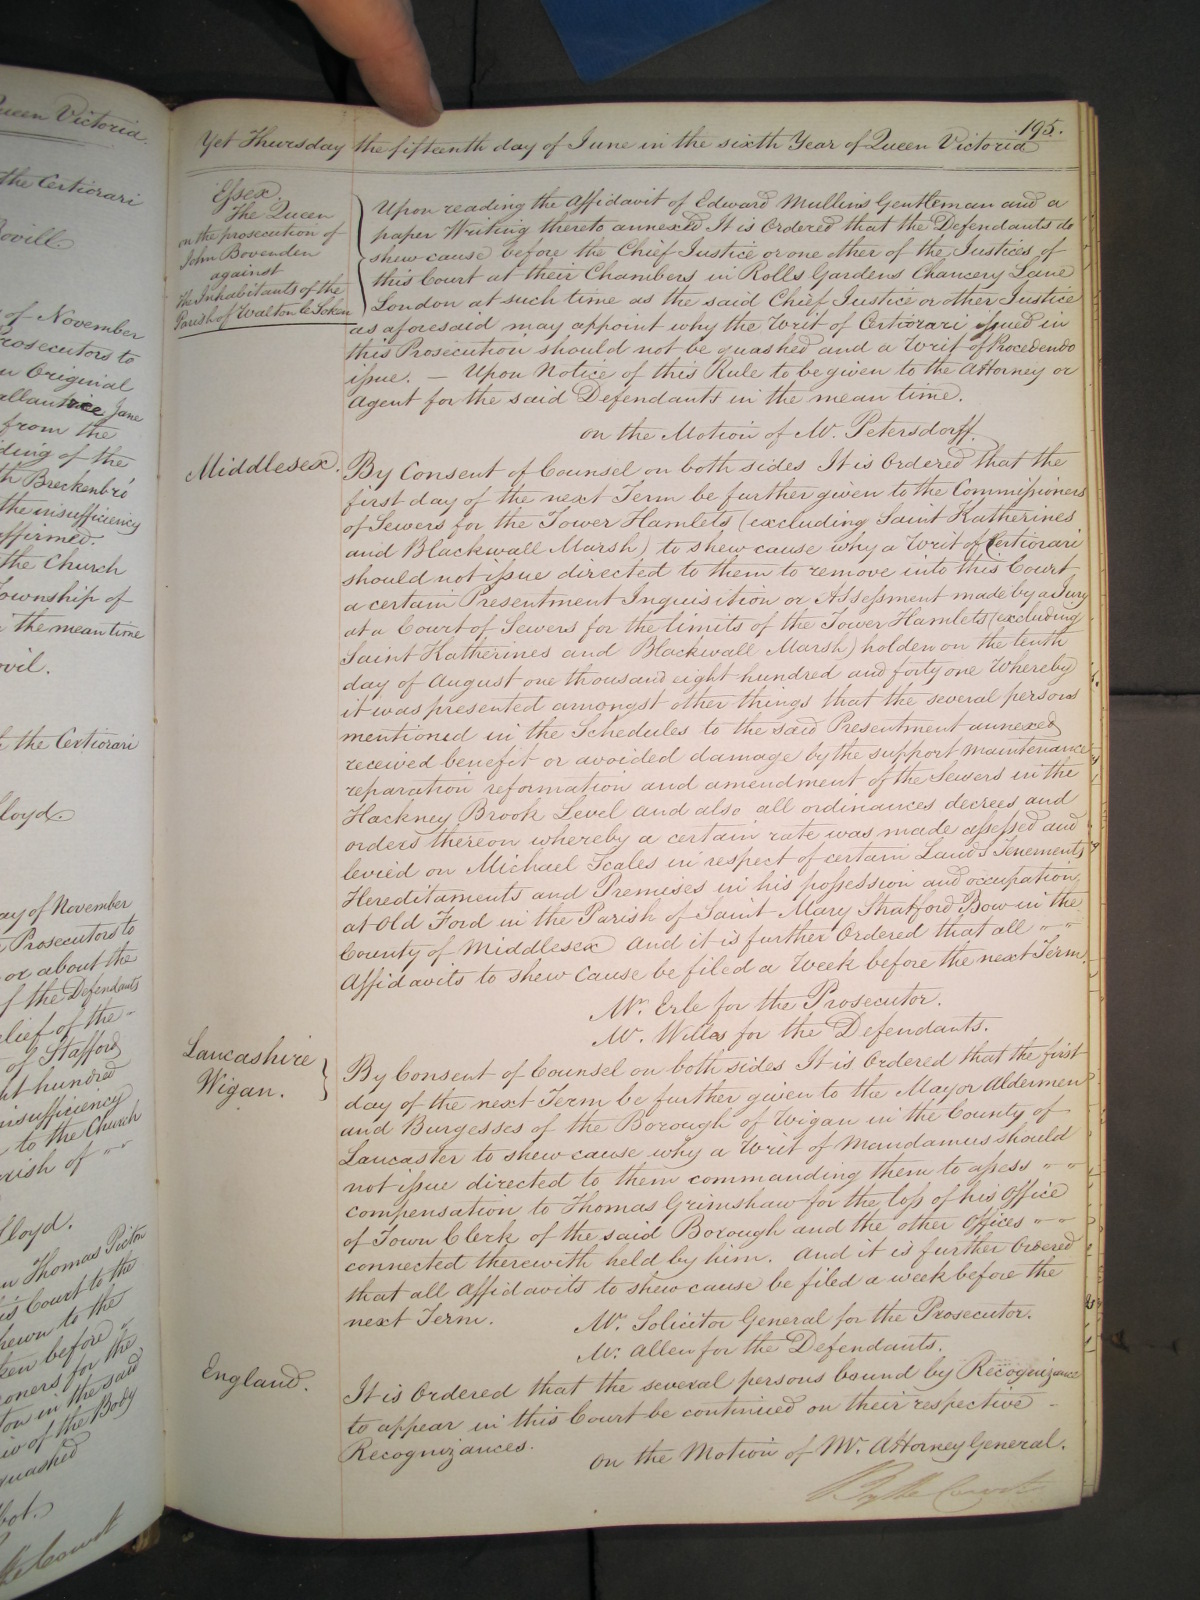 Queen Victoria.
the Certiorari
Bovill.
of November
Prosecutors to
Original
Jane
from the
ding of the
Breckenbro'
the insufficiency
affirmed.
the Church
Township of
the mean time
ovil.
the Certiorari
loyd.
ay of November
Prosecutors to
or about the
of the Defendants
relief of the
of Stafford
ht hundred
insufficiency
to the Church
rish of
lloyd.
Thomas Picton
is Court to the
hewn to the
ken before
oners for the
ton in the said
iv of the Body
quashed
bot.
195.
Yet Thursday the fifteenth day of June in the sixth Year of Queen Victoria
Essex.
The Queen
on the prosecution of
John Bovenden
against
The Inhabitants of the
Parish of Walton le Soken
Upon reading the Affidavit of Edward Mullins Gentleman and a
paper Writing thereto annexed It is Ordered that the Defendants do
shew cause before the Chief Justice or one other of the Justices of
this Court at their Chambers in Rolls Gardens Chancery Lane
London at such time as the said Chief Justice or other Justice
as aforesaid may appoint why the Writ of Certiorari issued in
this Prosecution should not be quashed and a Writ of Procedendo
issue. — Upon Notice of this Rule to be given to the Attorney or
Agent for the said Defendants in the mean time.
on the Motion of Mr. Petersdorff.
Middlesex.
By Consent of Counsel on both sides It is Ordered that the
first day of the next Term be further given to the Commissioners
of Sewers for the Tower Hamlets (excluding Saint Katherines
and Blackwall Marsh) to shew cause why a Writ of Certiorari
should not issue directed to them to remove into this Court
a certain Presentment Inquisition or Assessment made by a Jury
at a Court of Sewers for the limits of the Tower Hamlets (excluding
Saint Katherines and Blackwall Marsh) holden on the tenth
day of August one thousand eight hundred and forty one Whereby
it was presented amongst other things that the several persons
mentioned in the Schedules to the said Presentment annexed
received benefit or avoided damage by the support maintenance
reparation reformation and amendment of the Sewers in the
Hackney Brook Level and also all ordinances decrees and
orders thereon whereby a certain rate was made assessed and
levied on Michael Scales in respect of certain Lands Tenements
Hereditaments and Premises in his possession and occupation
at Old Ford in the Parish of Saint Mary Stratford Bow in the
County of Middlesex And it is further Ordered that all
Affidavits to shew cause be filed a Week before the next Term.
Mr. Erle for the Prosecutor.
Mr. Willes for the Defendants.
Lancashire
Wigan.
By Consent of Counsel on both sides It is Ordered that the first
day of the next Term be further given to the Mayor Aldermen
and Burgesses of the Borough of Wigan in the County of
Lancaster to shew cause why a Writ of Mandamus should
not issue directed to them commanding them to assess
compensation to Thomas Grimshaw for the loss of his Office
of Town Clerk of the said Borough and the other Offices
connected therewith held by him. And it is further Ordered
that all Affidavits to shew cause be filed a week before the
next Term.
Mr. Solicitor General for the Prosecutor.
Mr. Allen for the Defendants.
England.
It is Ordered that the several persons bound by Recognizance
to appear in this Court be continued on their respective
Recognizances.
on the Motion of Mr. Attorney General.
By the Court